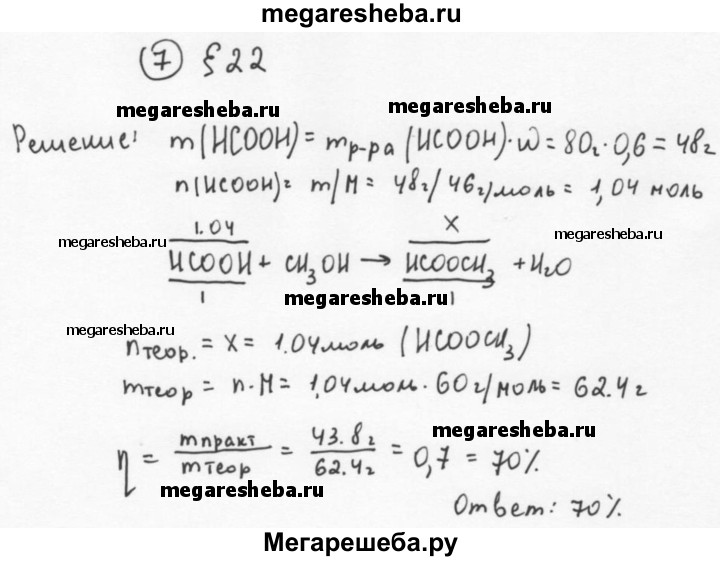 megaresheba.ru
7 § 22
megaresheba.ru megaresheba.ru
Решение: m(HCOOH) = mр-ра (HCOOH)·ω = 80г·0,6 = 48г
n(HCOOH) = m/M = 48г/46г/моль = 1,04 моль
1.04 X
megaresheba.ru megaresheba.ru
HCOOH + CH₃OH → HCOOCH₃ + H₂O
1 megaresheba.ru 1
megaresheba.ru
nтеор. = X = 1.04моль (HCOOCH₃)
mтеор = n·M = 1,04моль·60г/моль = 62.4г
η = mпракт/mтеор = 43.8г/62.4г = 0,7 = 70%
megaresheba.ru
megaresheba.ru
Ответ: 70%.
Мегарешеба.ру